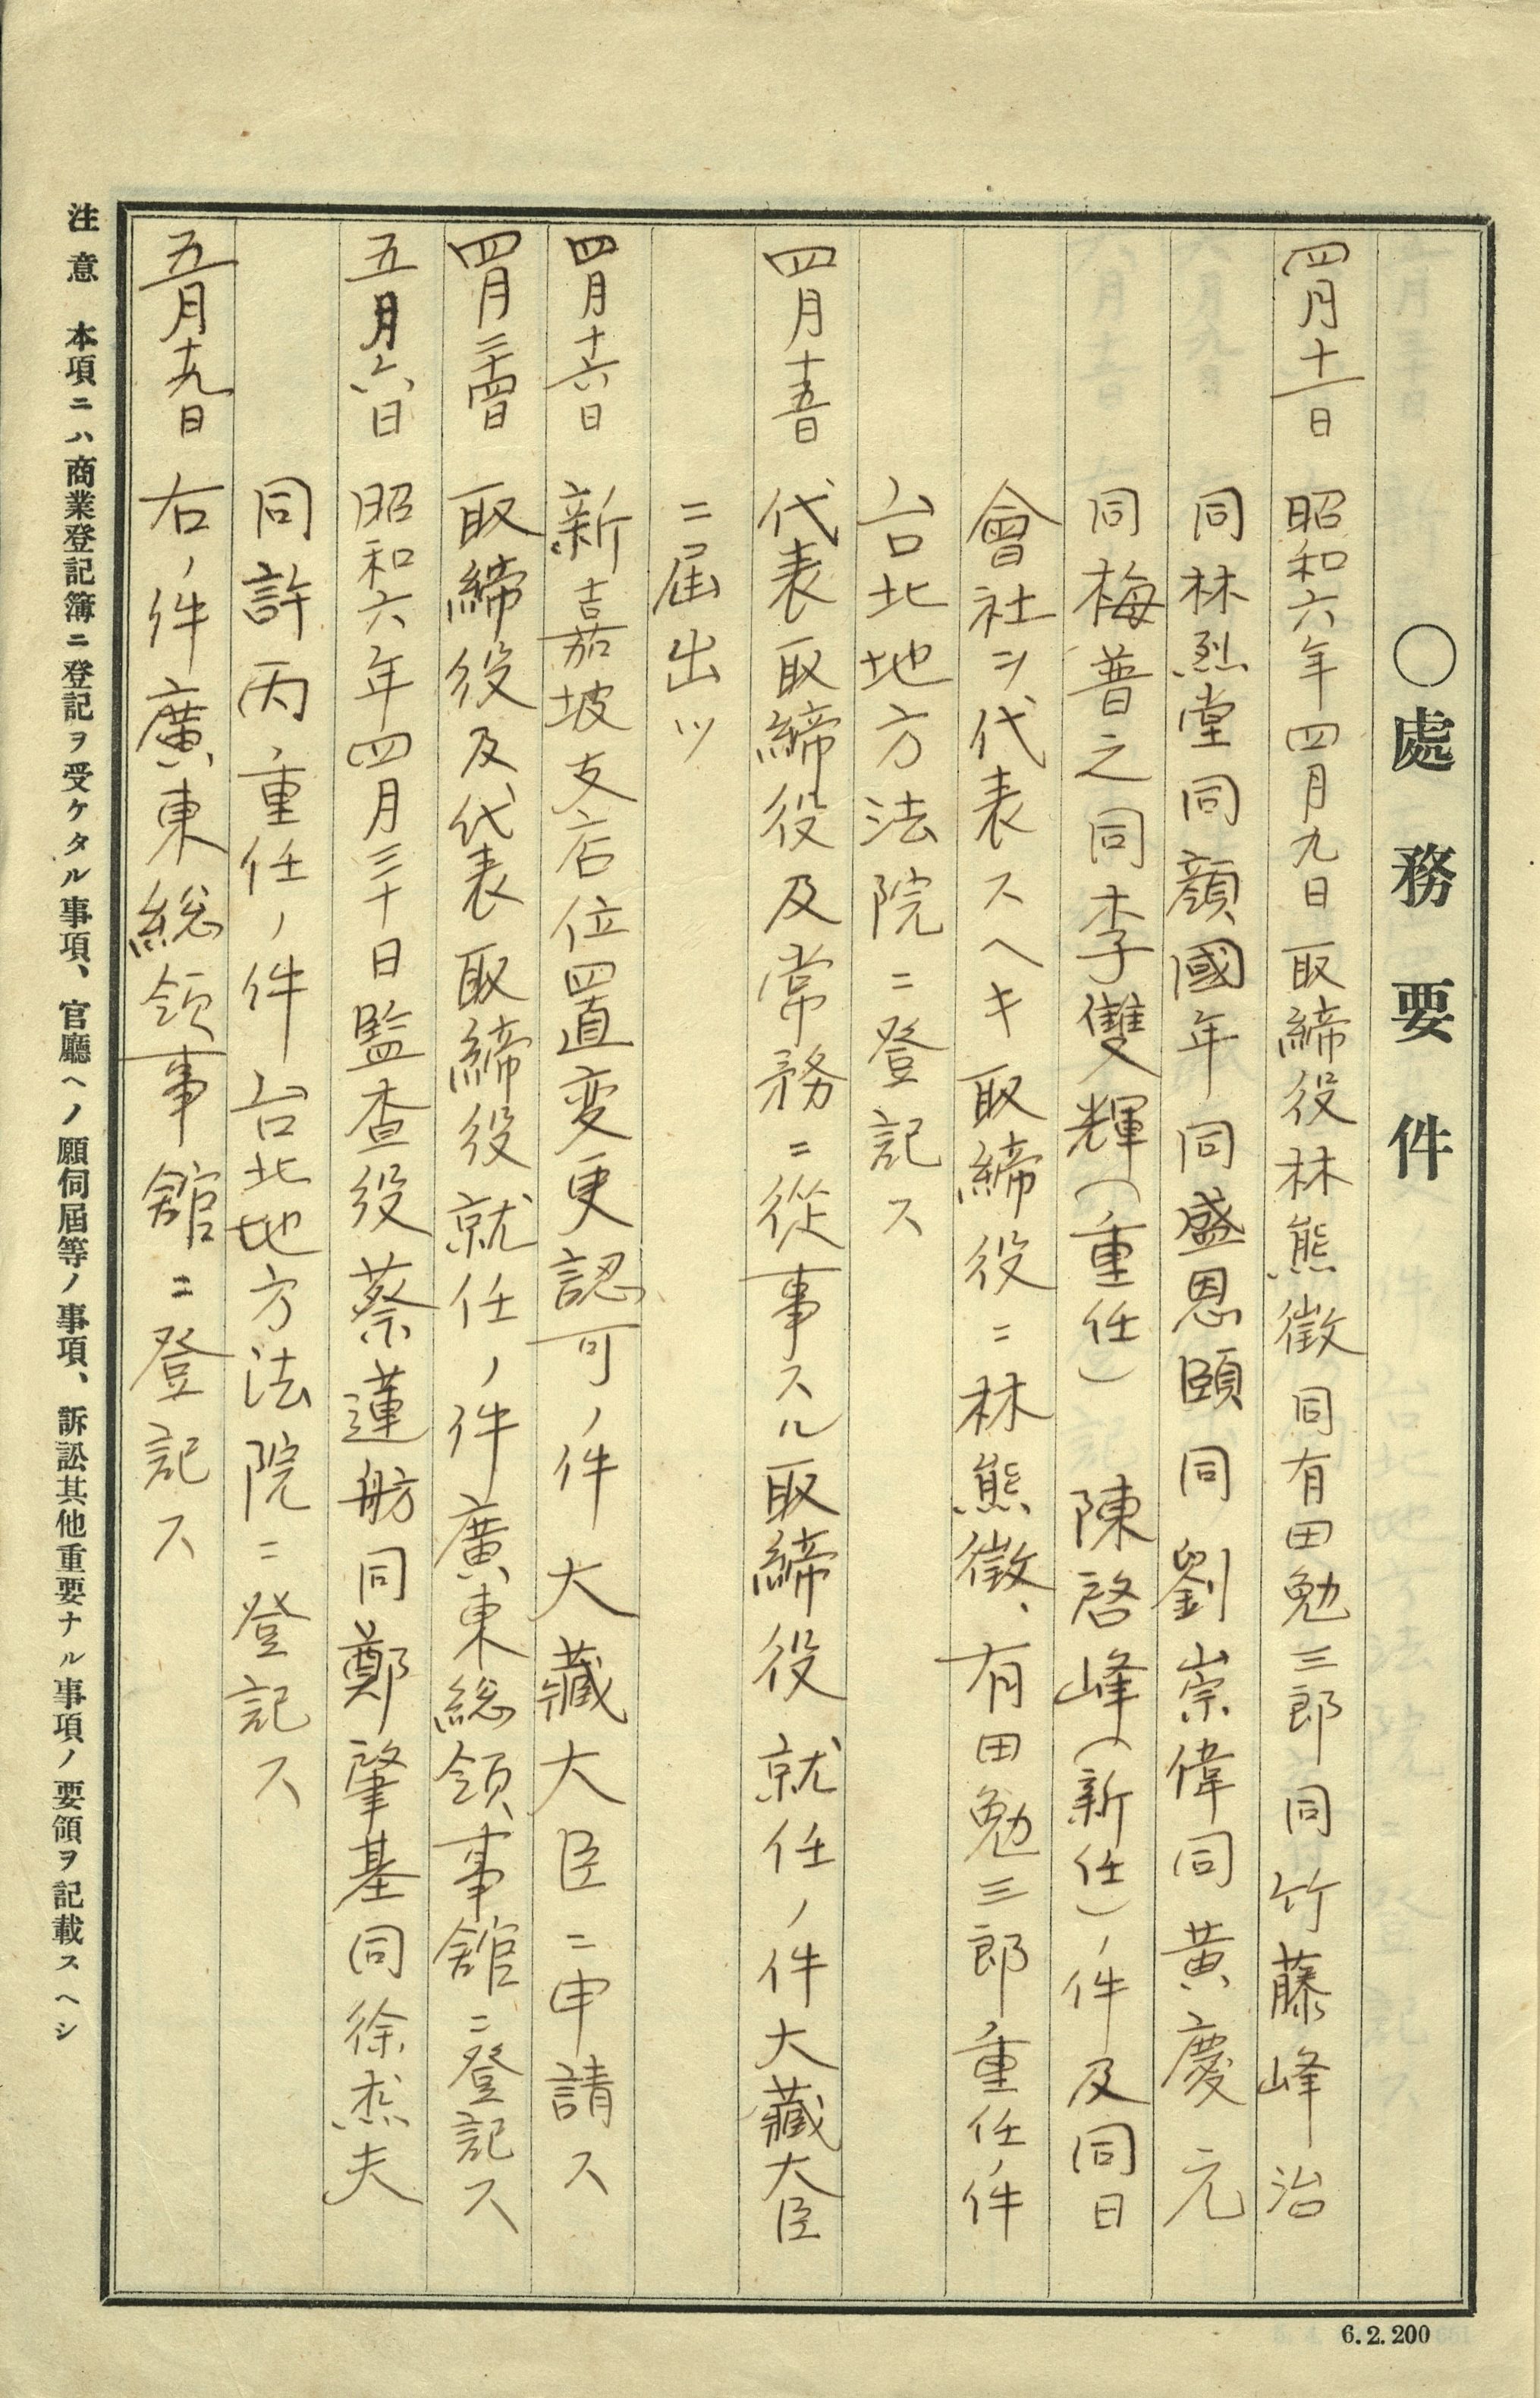 〇處務要件
四月十一日 昭和六年四月九日取締役林熊徵同有田勉三郎同竹藤峰治
同林烈堂同顏國年同盛恩頤同劉崇偉同黃慶元
同梅普之同李雙輝(重任) 陳啓峰(新任)ノ件及同日
會社ヲ代表スヘキ取締役ニ林熊徵、有田勉三郎重任ノ件
台北地方法院ニ登記ス
四月十五日 代表取締役及常務ニ從事スル取締役就任ノ件大藏大臣
ニ届出ツ
四月十六日 新嘉坡支店位置変更認可ノ件大藏大臣ニ申請ス
四月二十四日 取締役及代表取締役就任ノ件廣東総領事館ニ登記ス
五月六日 昭和六年四月三十日監查役蔡蓮舫同鄭肇基同徐杰夫
同許丙ノ重任ノ件台北地方法院ニ登記ス
五月十九日 右ノ件廣東総領事館ニ登記ス
注意 本項ニハ商業登記簿ニ登記ヲ受ケタル事項、官廳ヘノ願伺屆等ノ事項、訴訟其他重要ナル事項ノ要領ヲ記載スヘシ
6.2.200